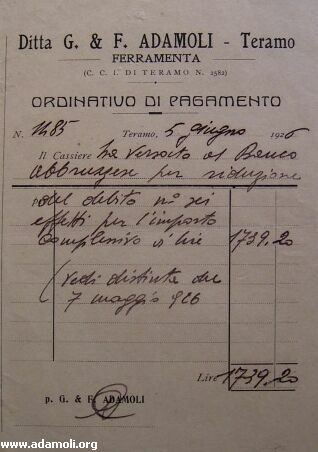 Ditta G. & F. ADAMOLI - Teramo
FERRAMENTA
(C. C. I. DI TERAMO N. 2582)
ORDINATIVO DI PAGAMENTO
N. 1485 Teramo, 5 giugno 1926
Il Cassiere ha versato al Banco
Abbruzzese per riduzione
del debito no sei
effetti per l'importo
complessivo di lire 1739.20
vedi distinta del
7 maggio 926
Lire 1739.20
p. G. & F. ADAMOLI
www.adamoli.org